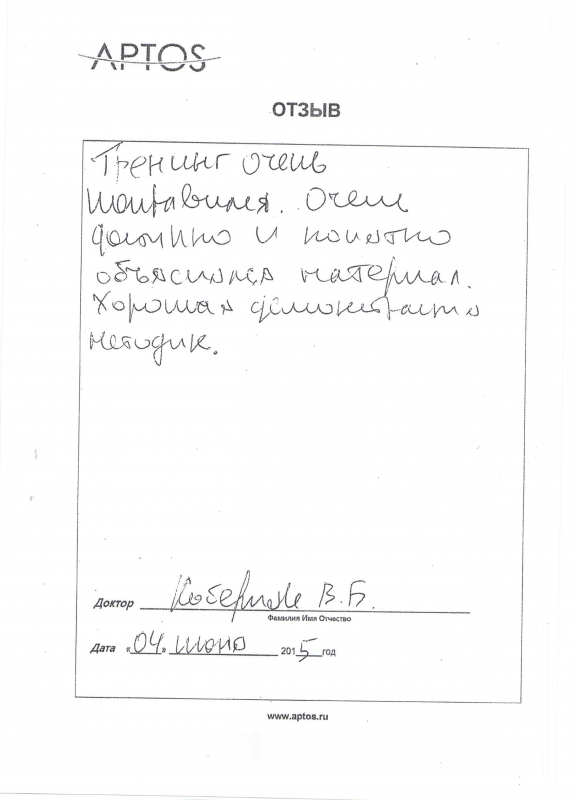 APTOS
ОТЗЫВ
Тренинг очень
понравился. Очень
доступно и понятно
объяснялся материал.
Хорошая демонстрация
методик.
Доктор В.Б.
Фамилия Имя Отчество
Дата «04» июня 2015 год
www.aptos.ru